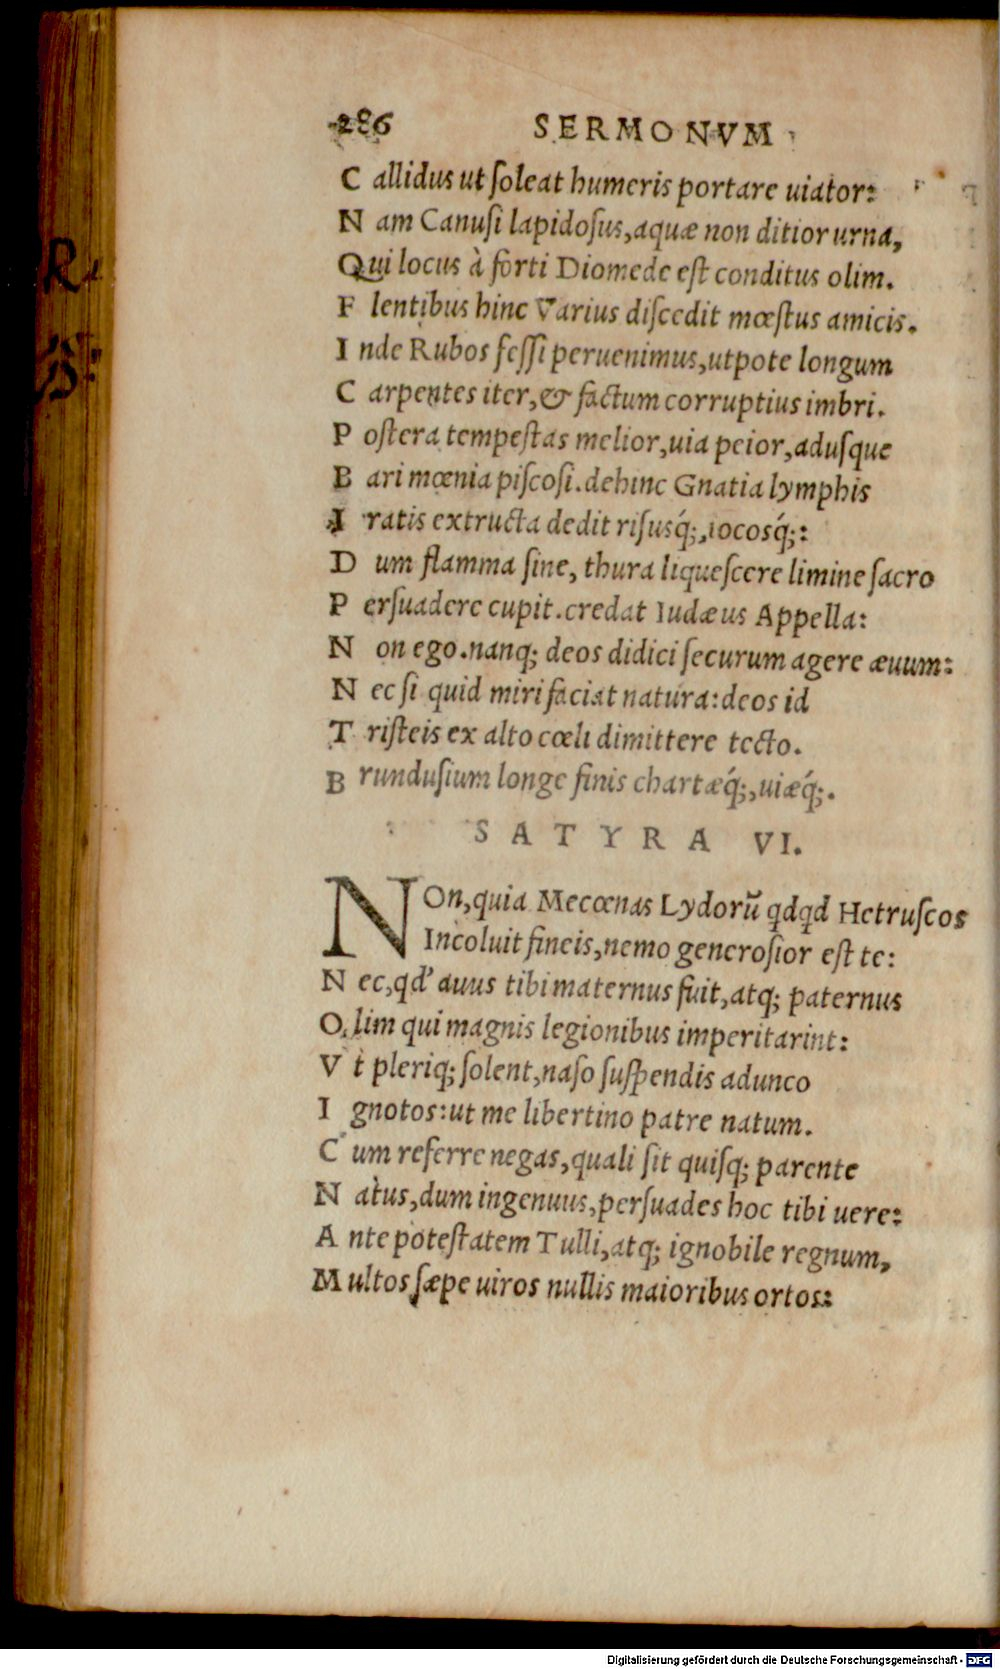 286 SERMONVM
C allidus ut ſoleat humeris portare uiator:
N am Canuſi lapidoſus, aquæ non ditior urna,
Qui locus à forti Diomede eſt conditus olim.
F lentibus hinc Varius diſcedit mœſtus amicis.
I nde Rubos feſſi peruenimus, utpote longum
C arpentes iter, & factum corruptius imbri.
P oſtera tempeſtas melior, uia peior, aduſque
B ari mœnia piſcoſi. dehinc Gnatia lymphis
I ratis extructa dedit riſusq́;, iocosq́;:
D um flamma ſine, thura liqueſcere limine ſacro
P erſuadere cupit. credat Iudæus Appella:
N on ego. nanq; deos didici ſecurum agere æuum:
N ec ſi quid miri faciat natura: deos id
T riſteis ex alto cœli dimittere tecto.
B runduſium longe finis chartæq́;, uiæq́;.
SATYRA VI.
NOn, quia Mecœnas Lydorũ qdqd Hetruſcos
Incoluit fineis, nemo generoſior eſt te:
N ec, qd' auus tibi maternus fuit, atq; paternus
O lim qui magnis legionibus imperitarint:
V t pleriq; ſolent, naſo ſuſpendis adunco
I gnotos: ut me libertino patre natum.
C um referre negas, quali ſit quiſq; parente
N atus, dum ingenuus, perſuades hoc tibi uere:
A nte poteſtatem Tulli, atq; ignobile regnum,
M ultos ſæpe uiros nullis maioribus ortos:
R
B
Digitalisierung gefördert durch die Deutsche Forschungsgemeinschaft - DFG